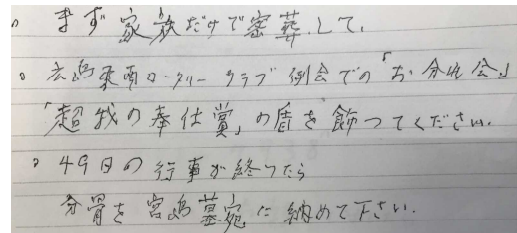 ○ まず家族だけで密葬して、
○ 広島東南ロータリークラブ例会での「お分れ会」
「超我の奉仕賞」の盾を飾つてください.
○ 49日の行事が終つたら
分骨を宮島墓宛に納めて下さい.